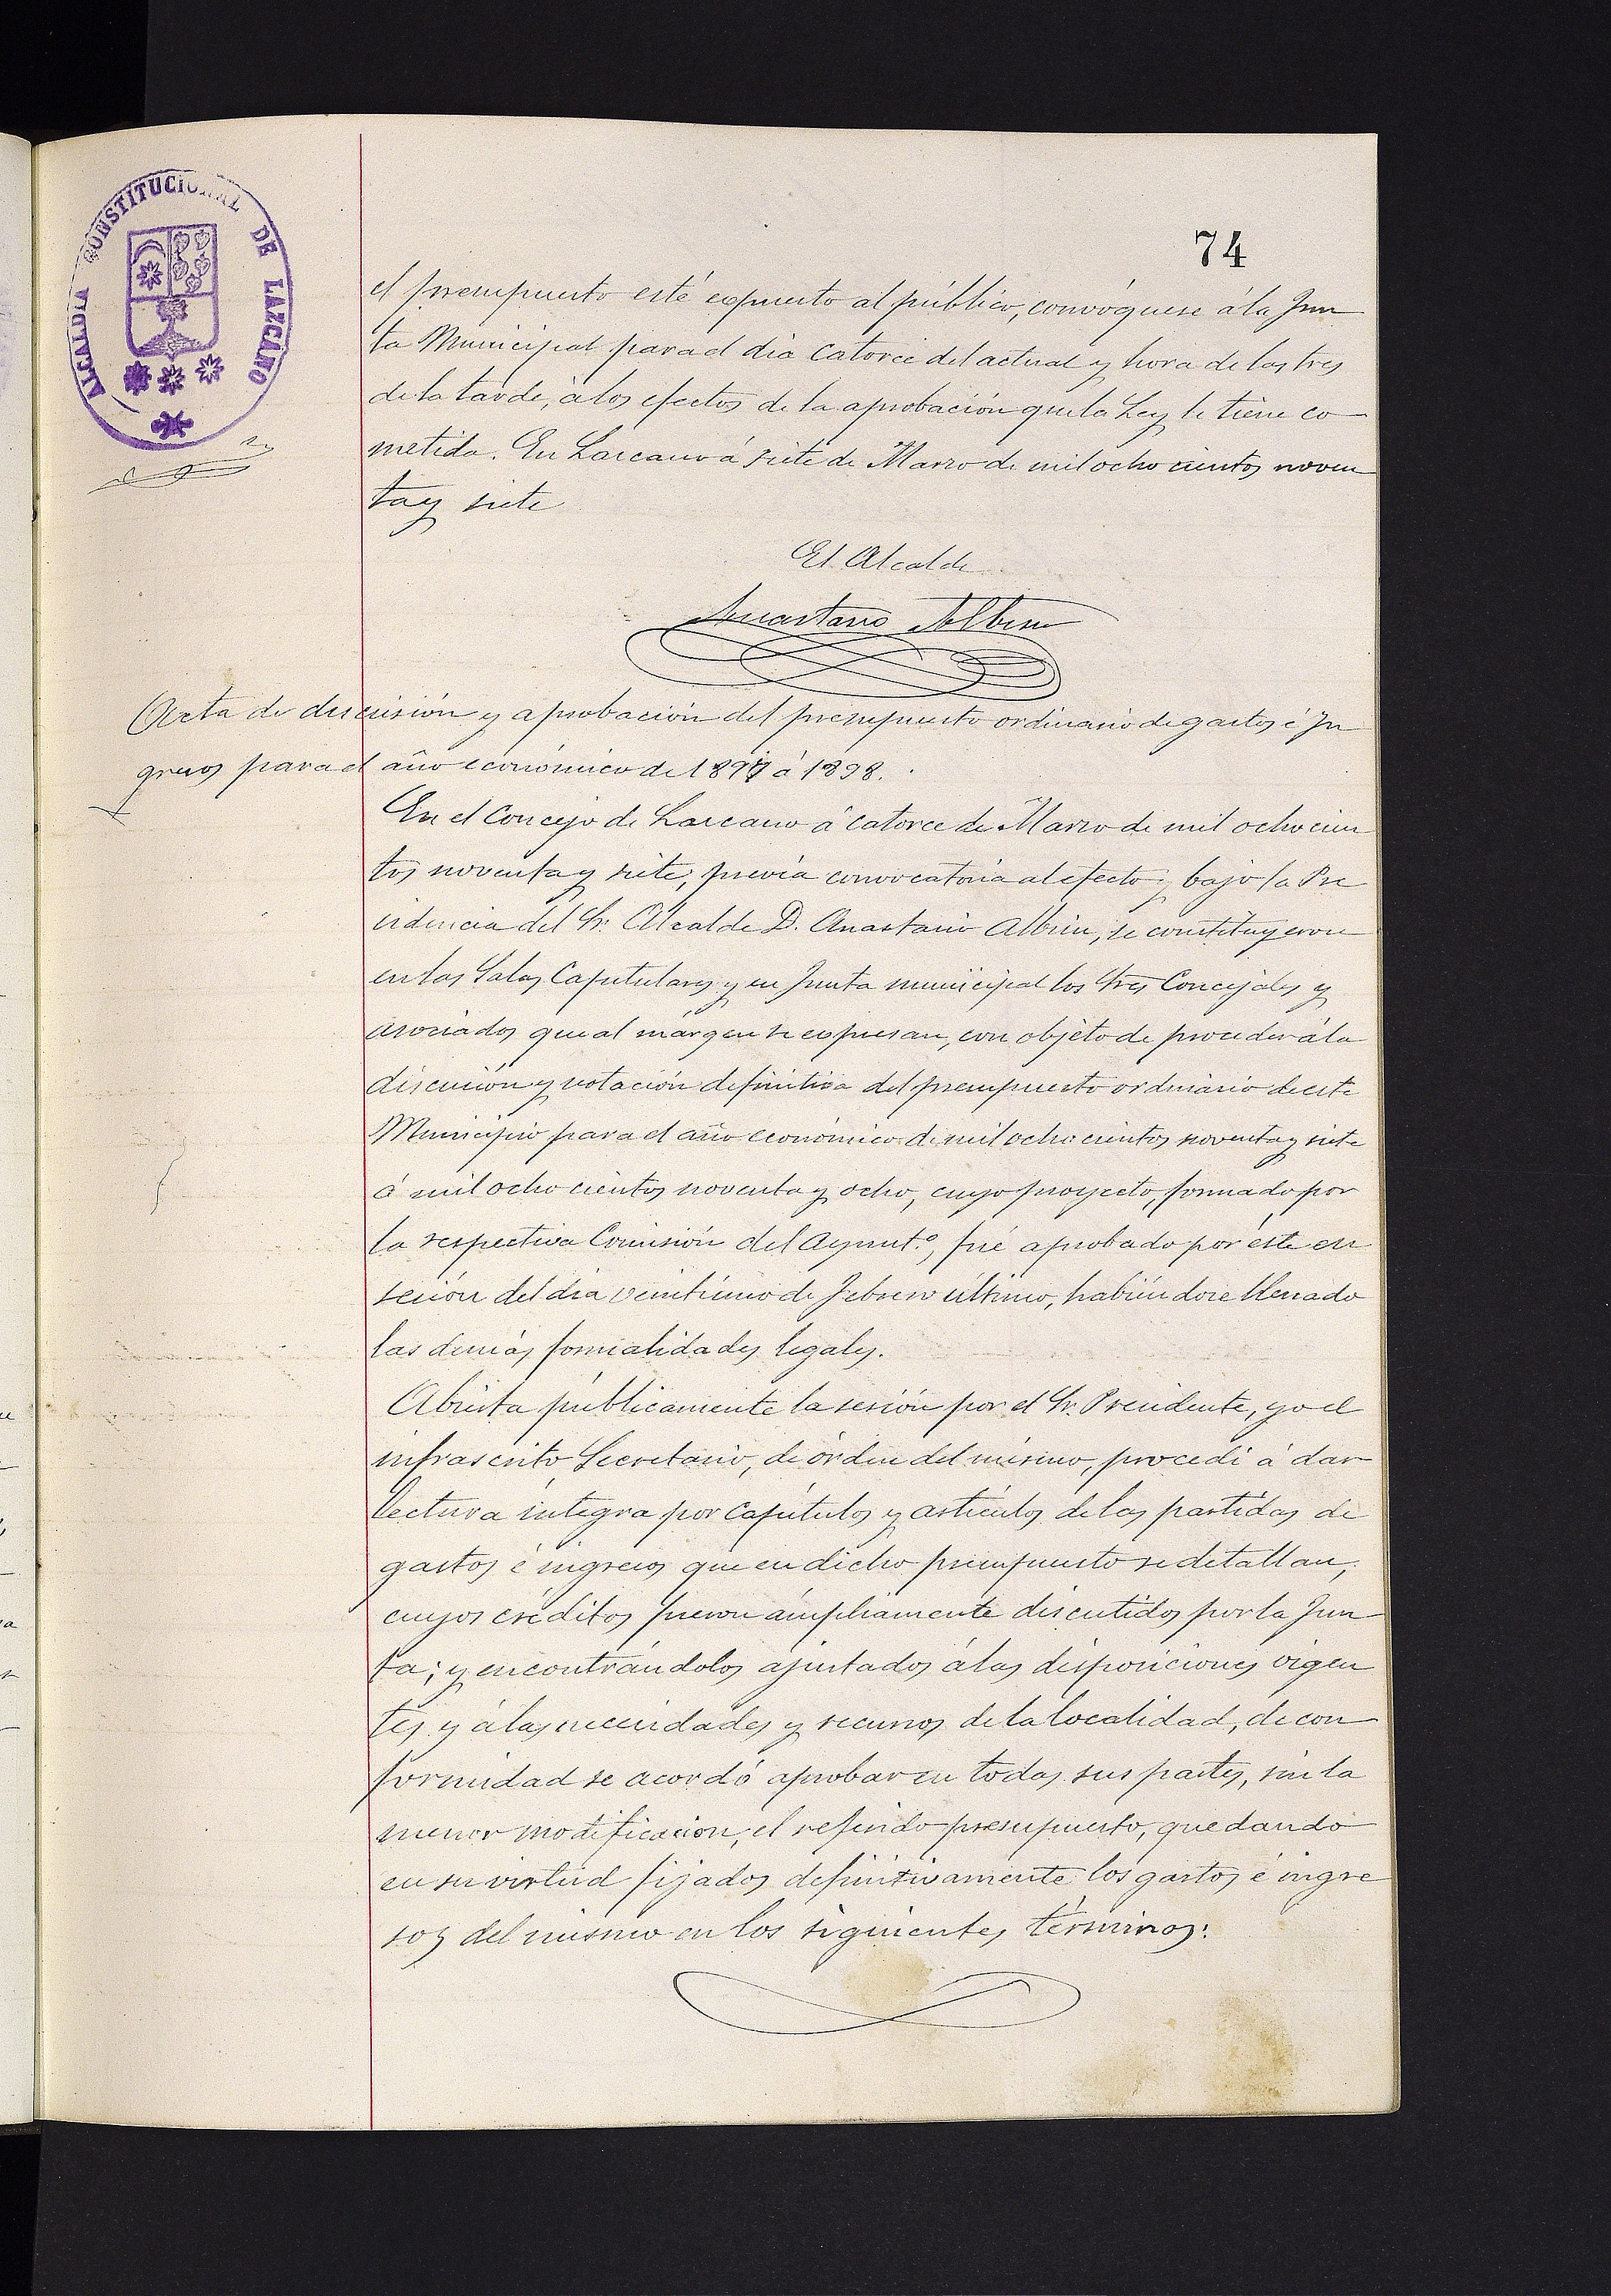 74
ALCALDIA CONSTITUCIONAL DE LAZCANO
el presupuesto esté expuesto al público, convóquese á la Jun
ta Municipal para el dia catorce del actual y hora de las tres
de la tarde, á los efectos de la aprobación que la Ley le tiene co-
metida. En Lazcano á siete de Marzo de mil ocho cientos noven
ta y siete
El Alcalde
Anastasio Albisu
Acta de discusión y aprobación del presupuesto ordinario de gastos é In
gresos para el año económico de 1897 á 1898.
En el Concejo de Lazcano á catorce de Marzo de mil ochocien
tos noventa y siete, prévia convocatoria al efecto y bajo la Pre
sidencia del Sr. Alcalde D. Anastasio Albisu, se constituyeron
en las Salas Capitulares y en Junta municipal los Sres Concejales y
asociados que al márgen se expresan, con objeto de proceder á la
discusión y votación definitiva del presupuesto ordinario de este
Municipio para el año económico de mil ocho cientos noventa y siete
á mil ocho cientos noventa y ocho, cuyo proyecto, formado por
la respectiva Comisión del Ayunt.º, fué aprobado por éste en
sesión del dia veintiuno de Febrero último, habiéndose llenado
las demás formalidades legales.
Abierta públicamente la sesión por el Sr. Presidente, yo el
infrascrito Secretario, de órden del mismo, procedí á dar
lectura íntegra por capítulos y artículos de las partidas de
gastos é ingresos que en dicho presupuesto se detallan,
cuyos créditos fueron ámpliamente discutidos por la Jun
ta; y encontrándolos ajustados á las disposiciones vigen
tes y á las necesidades y recursos de la localidad, de con
formidad se acordó aprobar en todas sus partes, sin la
menor modificación, el referido presupuesto, quedando
en su virtud fijados definitivamente los gastos é ingre
sos del mismo en los siguientes términos: